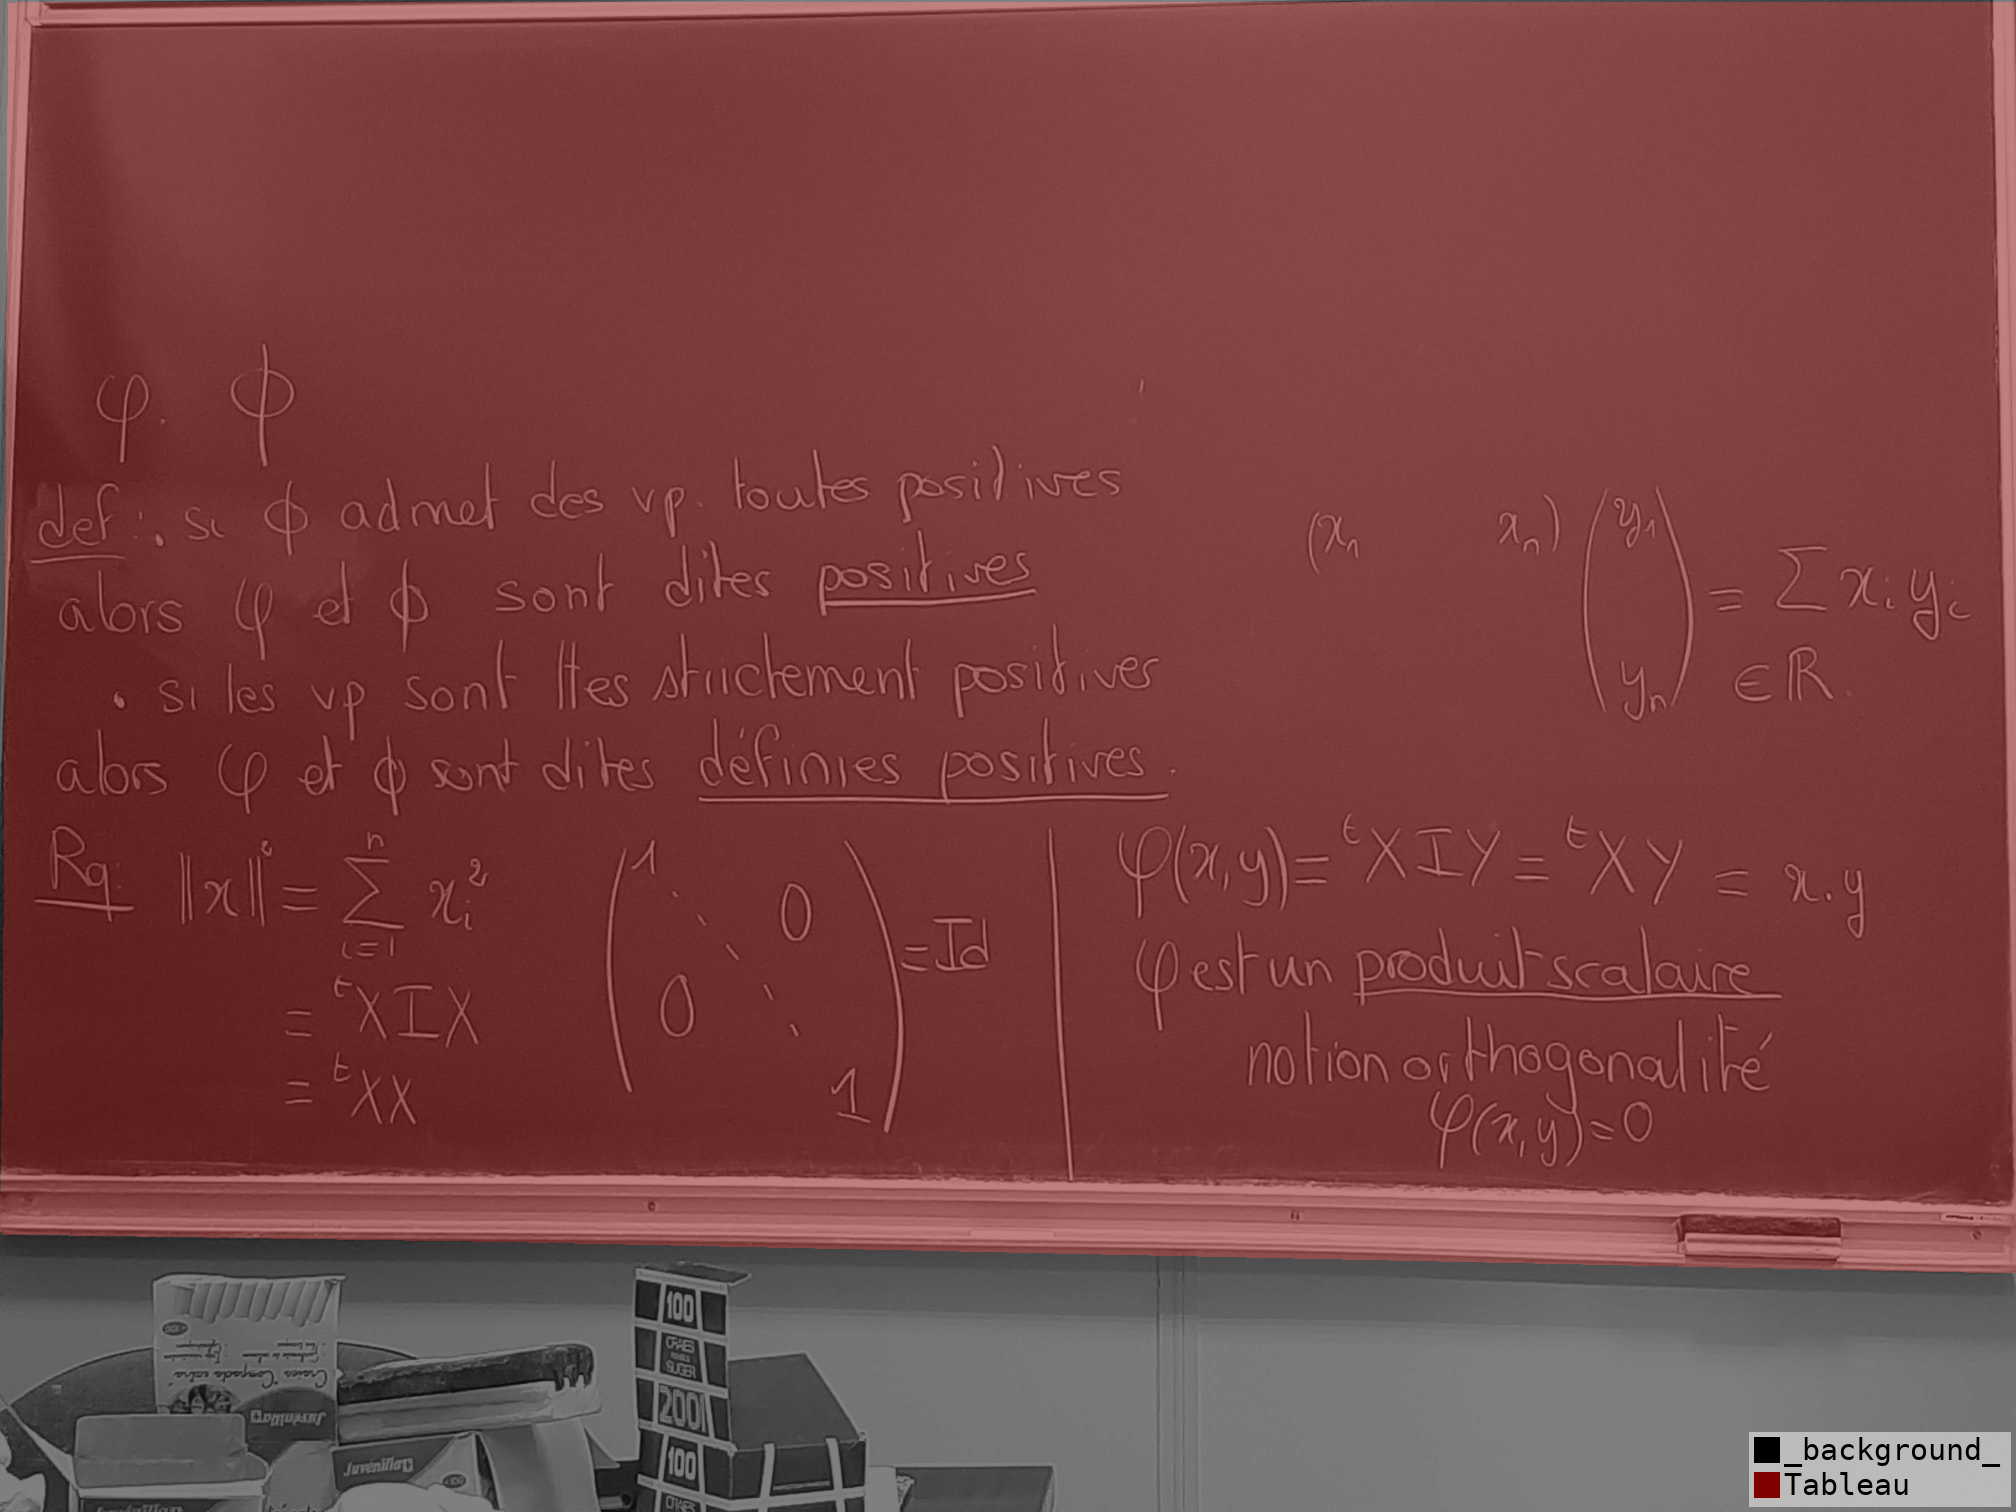 φ. ϕ
def : . si ϕ admet des vp. toutes positives
alors φ et ϕ sont dites positives
. si les vp sont ttes strictement positives
alors φ et ϕ sont dites définies positives.
Rq: ||x||² = ∑ᵢ₌₁ⁿ xᵢ²
= ᵗXIX
= ᵗXX
(1 0 0 1) = Id
(x₁ xₙ) (y₁ yₙ) = ∑ xᵢ yᵢ
∈ ℝ.
φ(x,y) = ᵗXIY = ᵗXY = x.y
φ est un produit scalaire
notion orthogonalité
φ(x,y)=0
100
CRAIES
SUGER
200
100
CRAIES
Craies "Compada extra"
Juvenilia
Juvenilia
_background_
Tableau